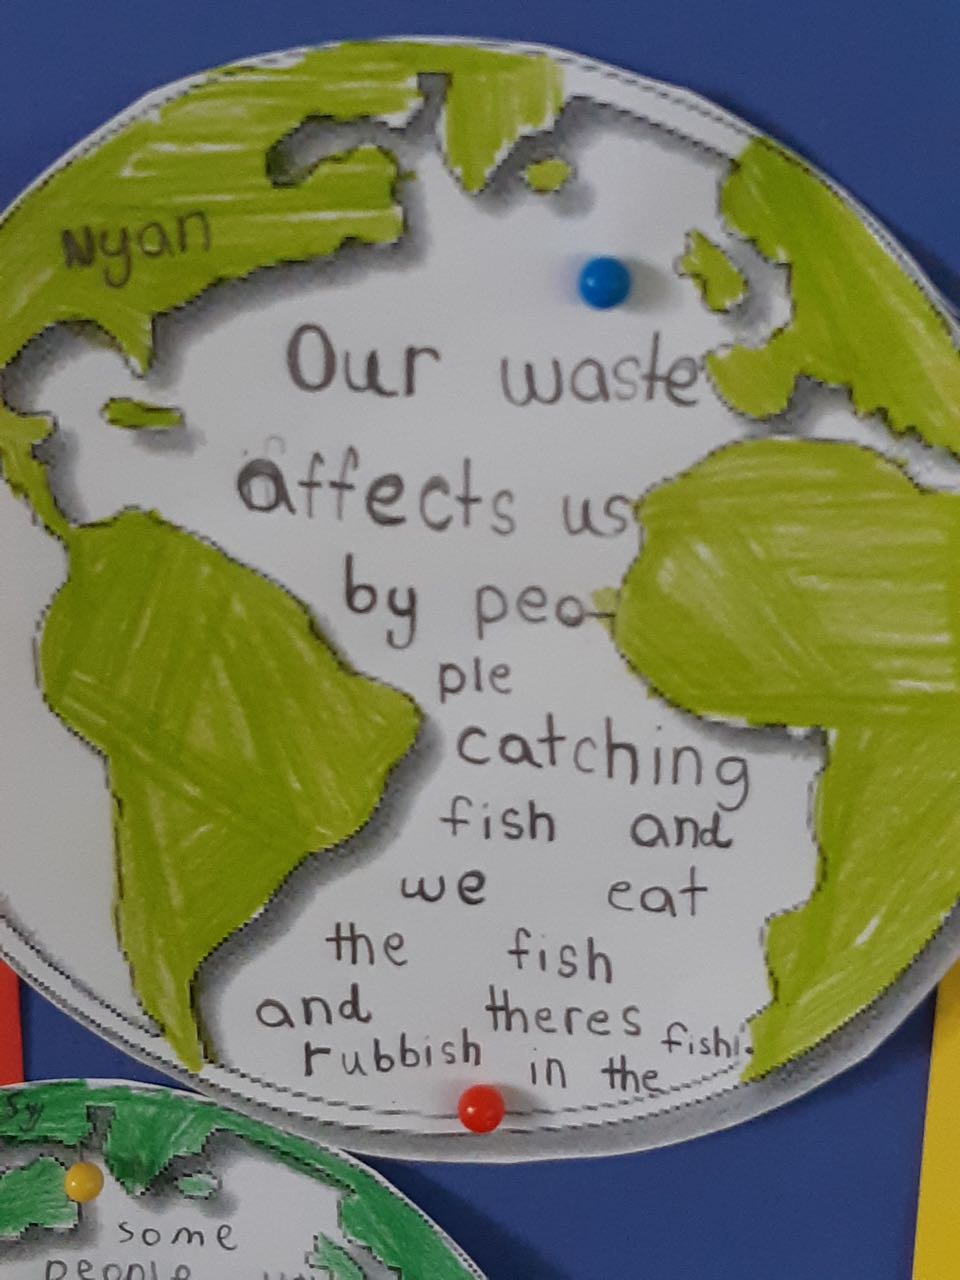 Nyan
Our waste
affects us
by peo-
ple
catching
fish and
we eat
the fish
and theres
rubbish in the
fish.
sy
some
people